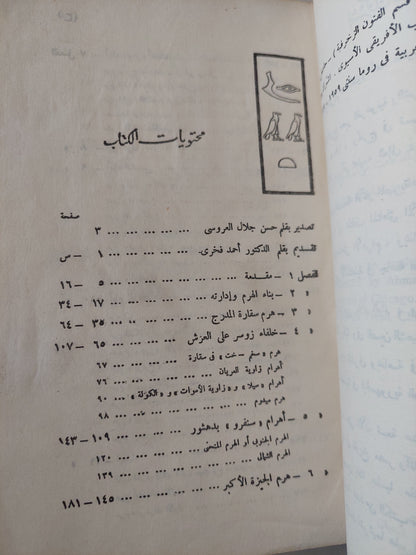 محتويات الكتاب
صفحة
تصدير بقلم حسن جلال العروسى ... ... ... ... ... ٣
تقديم بقلم الدكتور أحمد فخرى. ... ... ... ... ١ – س
الفصل ١ – مقدمة ... ... ... ... ... ... ٥ – ١٦
« ٢ – بناء الهرم وإدارته ... ... ... ... ١٧ – ٣٤
« ٣ – هرم سقارة المدرج ... ... ... ... ٣٥ – ٦٤
« ٤ – خلفاء زوسر على العرش ... ... ... ٦٥ – ١٠٧
هرم « سخم – خت » فى سقارة ... ... ... ٦٧
أهرام زاوية العريان ... ... ... ... ٧٦
أهرام « سيلا » و « زاوية الأموات » و « الكولة » ... ٩٠
هرم ميدوم ... ... ... ... ... ... ٩٨
« ٥ – أهرام « سنفرو » بدهشور ... ... ... ١٠٩ – ١٤٣
الهرم الجنوبى أو الهرم المنحنى ... ... ... ١٢٠
الهرم الشمالى ... ... ... ... ... ١٣٩
« ٦ – هرم الجيزة الأكبر ... ... ... ... ١٤٥ – ١٨١
قسم الفنون الزخرفية ) –
الأفريقى الآسيوى
فى روما سنتى